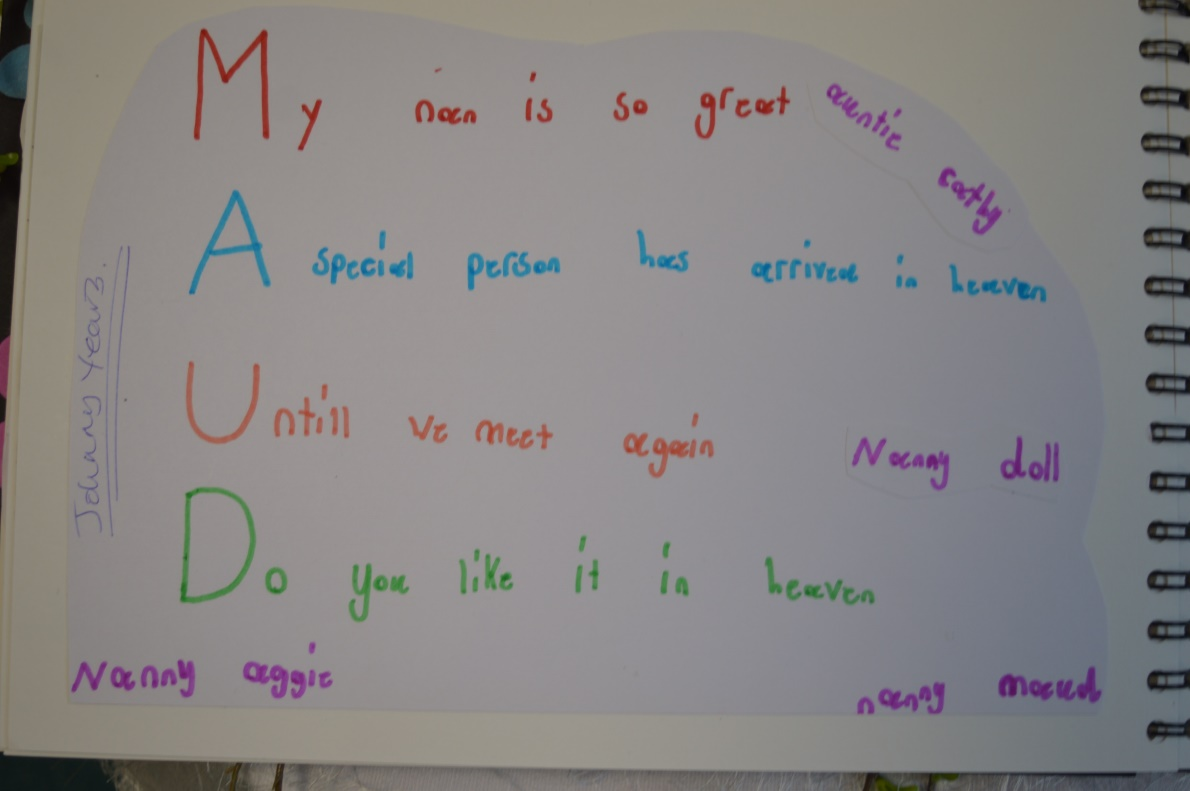 My nan is so great
auntie cathy
A special person has arrived in heaven
Untill we meet again
Nanny doll
Do you like it in heaven
Nanny aggie
nanny maud
Johnny Year 3.